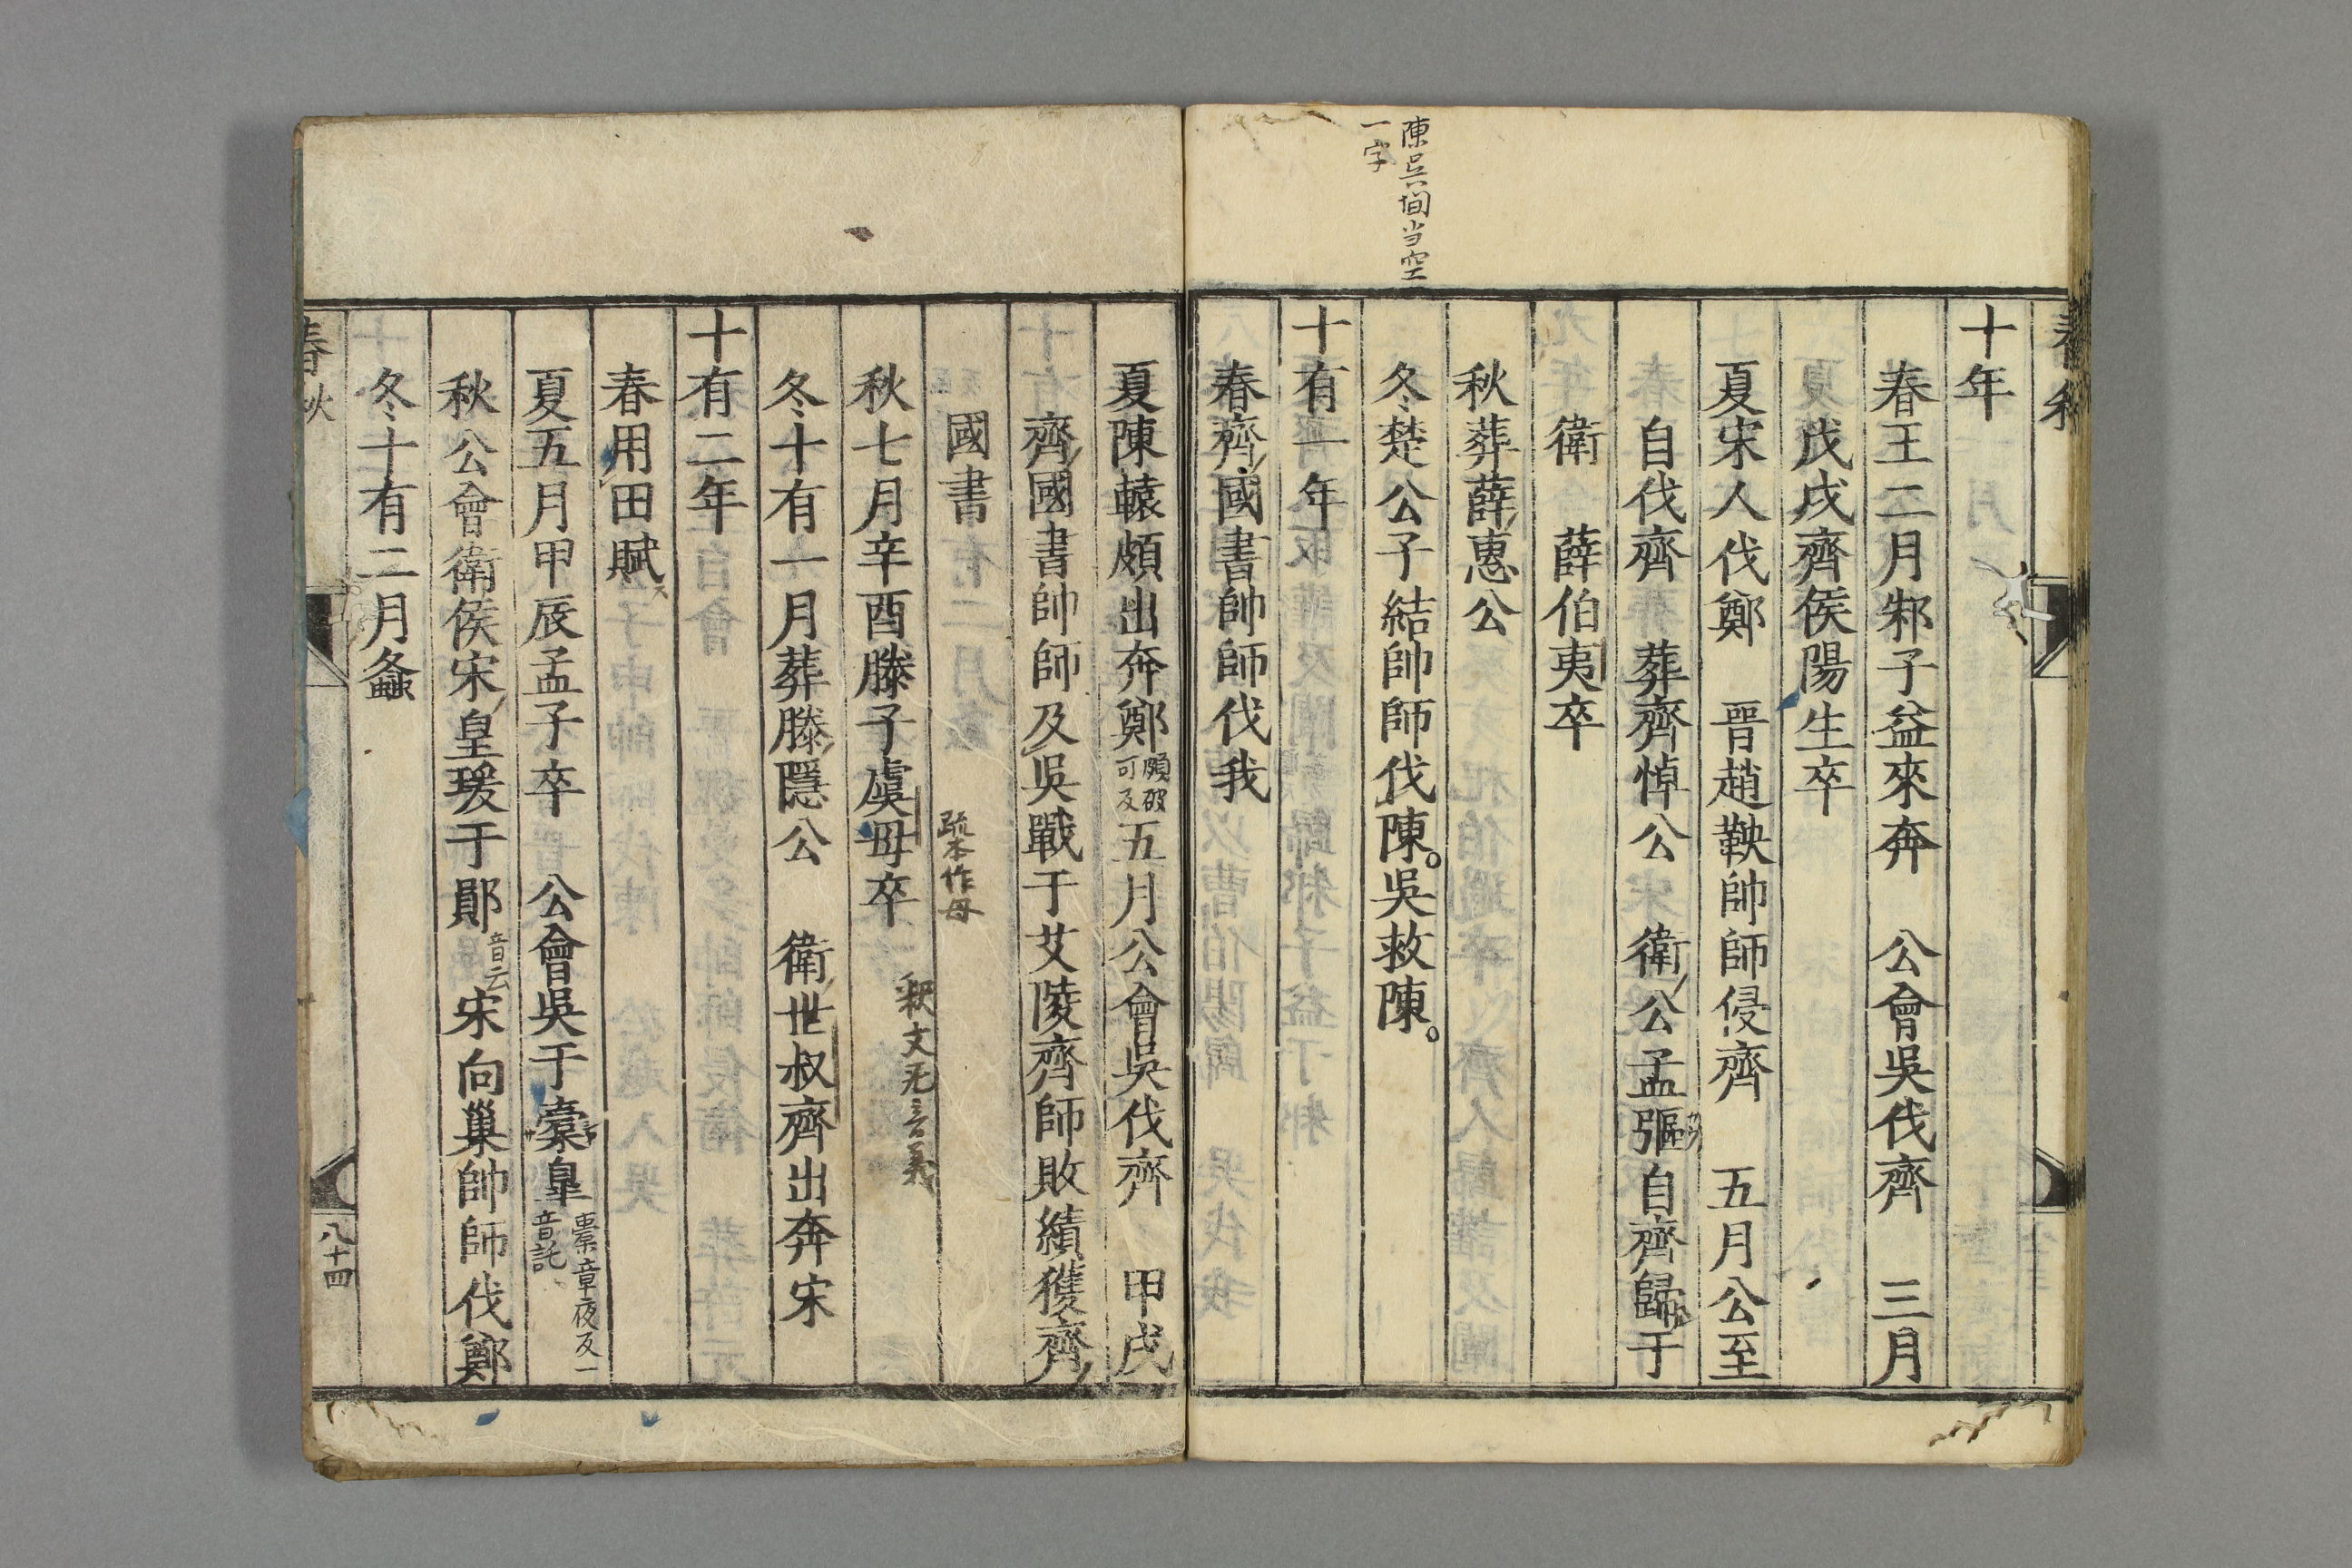 陳吳間当空
一字
春秋
十年
春王二月邾子益來奔　公會吳伐齊　三月
戊戌齊侯陽生卒
夏宋人伐鄭　晋趙鞅帥師侵齊　五月公至
自伐齊　葬齊悼公　衛公孟彄自齊歸于
衛　薛伯夷卒
秋葬薛惠公
冬楚公子結帥師伐陳。吳救陳。
十有一年
春齊國書帥師伐我
夏陳轅頗出奔鄭頗破可反五月公會吳伐齊　甲戌
齊國書帥師及吳戰于艾陵齊師敗績獲齊
國書
疏本作毋
秋七月辛酉滕子虞毋卒
釈文无音義
冬十有一月葬滕隱公　衛世叔齊出奔宋
十有二年
春用田賦
夏五月甲辰孟子卒　公會吳于橐皐橐章夜反一音託
秋公會衛侯宋皇瑗于鄖音云宋向巢帥師伐鄭
冬十有二月螽
春秋
八十四